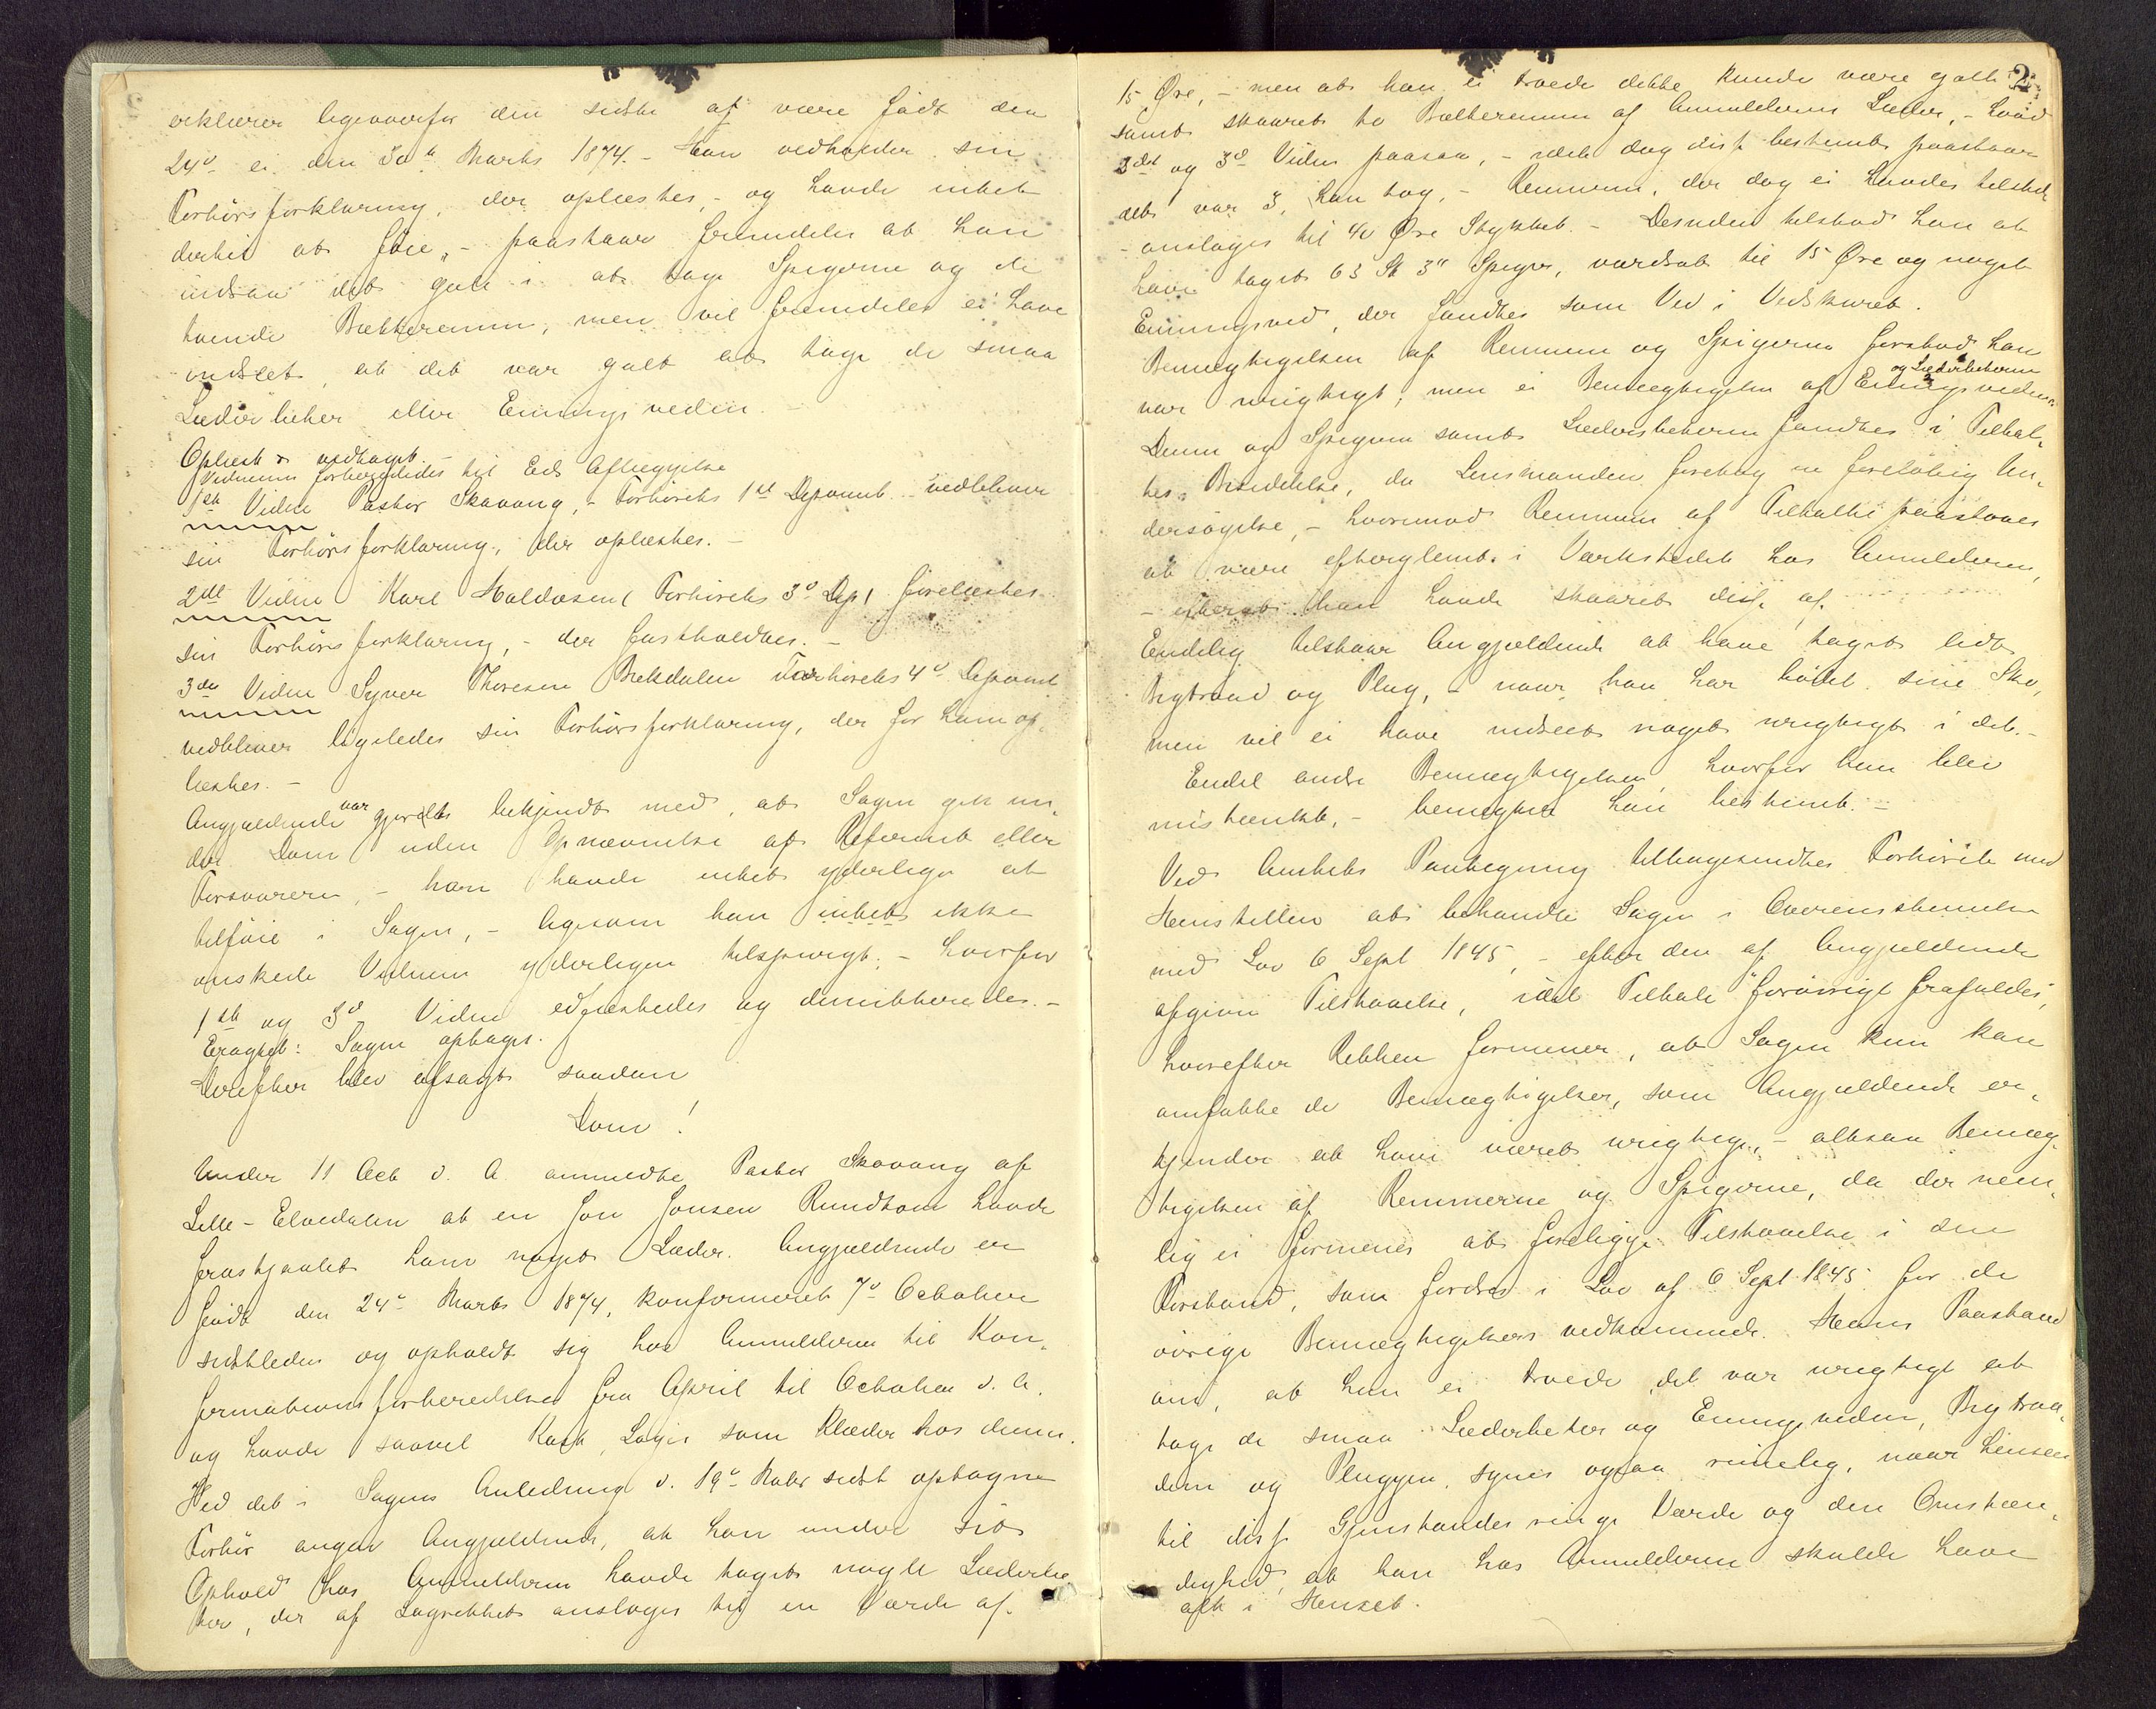 erklærer ligeoverfor den sidste af være født den
24de ei den 30te Marts 1874. - Han vedholder sin
Forhørsforklaring, der oplæstes, - og havde intet
dertil at føie, - paastaar fremdeles at han
indsaa det gale i at tage Spigerne og de
tvende Bælteremme, men vil fremdeles ei have
indseet, at det var galt at tage de smaa
Læderbiter eller Emningsveden. -
Oplæst & vedtaget. -
Vidnerne forberededes til Eds Aflæggelse
1ste Vidne Pastor Skavang, - Forhørets 1ste Deponent - vedbliver
sin Forhørsforklaring, der oplæstes. -
2det Vidne Karl Haldosen (Forhørets 3die Dep) forelæstes
sin Forhørsforklaring, - der fastholdtes. -
3die Vidne Syver Thoresen Brekdalen Forhørets 4de Deponent
vedbliver ligeledes sin Forhørsforklaring, der for ham op-
læstes. -
Angjældende var gjordt bekjendt med, at Sagen gik un-
der Dom uden Opnævnelse af Referent eller
Forsvarere, - han havde intet yderligere at
tilføie i Sagen, - ligesom han intet ikke
ønskede Vidnerne yderligere tilspurgt; - hvorfor
1ste og 3die Vidne edfæstedes og dimitteredes. -
Eragtet: Sagen optages.
Derefter blev afsagt saadan
Dom!
Under 11 Octb d. A. anmeldte Pastor Skavang af
Lille-Elvedalen at en Jon Jonsen Rundhom havde
frastjaalet ham noget Læder. Angjældende er
født den 24de Marts 1874, konfirmeret 7de October
sidstleden og opholdt sig hos Anmelderen til Kon-
firmationsforberedelse fra April til October d. A.
og havde saavel Kost, Logis som Klæder hos denne.
Ved det i Sagens Anledning d. 19de Novbr sidst optagne
Forhør angav Angjældende, at han under sit
Ophold hos Anmelderen havde taget nogle Læderbi-
ter, der af Lagrettet ansloges til en Værdi af
2
15 Øre, - men at han ei troede dette kunde være galt
samt skaaret to Bælteremme af Anmelderens Læder, - hvad
2det og 3die Vidne paasaa, - idet dog disse bestemt paastaar
det var 3, han tog, - Remmene, der dog ei havdes tilstede
- ansloges til 40 Øre Stykket. - Desuden tilstod han at
have taget 63 St 3" Spiger, værdsat til 15 Øre og noget
Emningsved, der fandtes som Ved i Vedskuret.
Bemægtigelsen af Remmene og Spigerne forstod han
var urigtigt, men ei Bemægtigelsen af Emningsveden
og Læderbiterne
Denne og Spigerne samt Læderbiterne fandtes i Tiltal-
tes Besiddelse, da Lensmanden foretog en foreløbig Un-
dersøgelse, - hvorimod Remmene af Tiltalte paastaaes
at være efterglemt i Værkstedet hos Anmelderen,
- efterat han havde skaaret disse af.
Endelig tilstaar Angjældende at have taget lidt
Begtraad og Plug, - naar han har bødet sine Sko,
men vil ei have indseet noget urigtigt i det. -
Endel andre Bemægtigelser, hvorfor han blev
mistænkt, - benegter han bestemt. -
Ved Amtets Paategning tilbagesendtes Forhøret med
Henstillen at behandle Sagen i Overensstemmelse
med Lov 6 Sept 1845, - efter den af Angjældende
afgivne Tilstaaelse, idet Tiltale "forøvrigt frafaldes",
hvorefter Retten formener, at Sagen kun kan
omfatte de Bemægtigelser, som Angjældende er-
kjender at have været urigtige, - altsaa Bemæg-
tigelsen af Remmerne og Spigerne, da der nem-
lig ei formenes at foreligge Tilstaaelse i den
Forstand, som fordres i Lov af 6 Sept 1845 for de
øvrige Bemægtigelsers vedkommende. Hans Paastand
om, at han ei troede det var urigtigt at
tage de smaa Læderbiter og Emningsveden, Begtraa-
den og Pluggen, synes ogsaa rimelig, naar henseer
til disse Gjenstandes ringe Værdi og den Omstæn-
dighed, at han hos Anmelderen skulde have
alt i Henset.